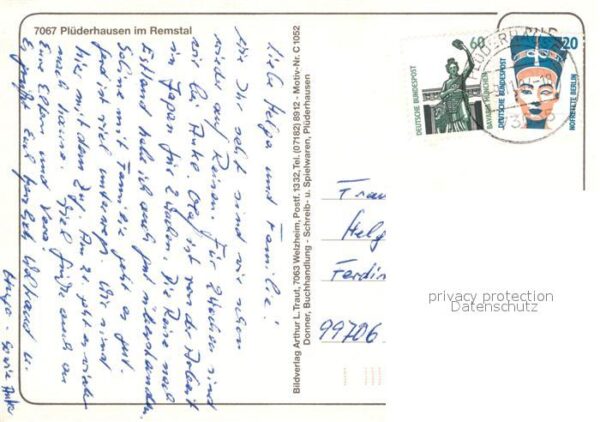 7067 Plüderhausen im Remstal
Liebe Helga und Familie!
Wie Du siehst sind wir schon
wieder auf Reisen. Für 2 Wochen sind
wir bei Anke. Olaf ist von der Arbeit
in Japan für 2 Wochen. Die Reise nach
Eßlingen habe ich auch gut überstanden.
Sabine mit Familie geht es gut.
sind viel unterwegs. Wir sind
hier mit dem Zug. Am 2. geht es wieder
nach Hause. Viel Grüße auch an
Eure Eltern und Vera.
Es grüßt Euch herzlich Waltraud u.
sowie Anke
Bildverlag Arthur L. Traut, 7063 Welzheim, Postf. 1332, Tel. (07182) 8912 - Motiv-Nr. C 1052
Donner, Buchhandlung - Schreib- u. Spielwaren, Plüderhausen
60
DEUTSCHE BUNDESPOST
BAVARIA MÜNCHEN
20
DEUTSCHE BUNDESPOST
NOFRETETE BERLIN
Frau
Helg
Ferdin
99706
privacy protection
Datenschutz